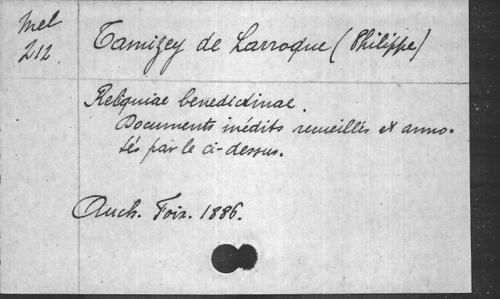 Mel
212
Tamizey de Larroque (Philippe)
Reliquiae benedictinae.
Documents inédits recueillis et anno-
tés par le ci-dessus.
Auch. Foix. 1886.